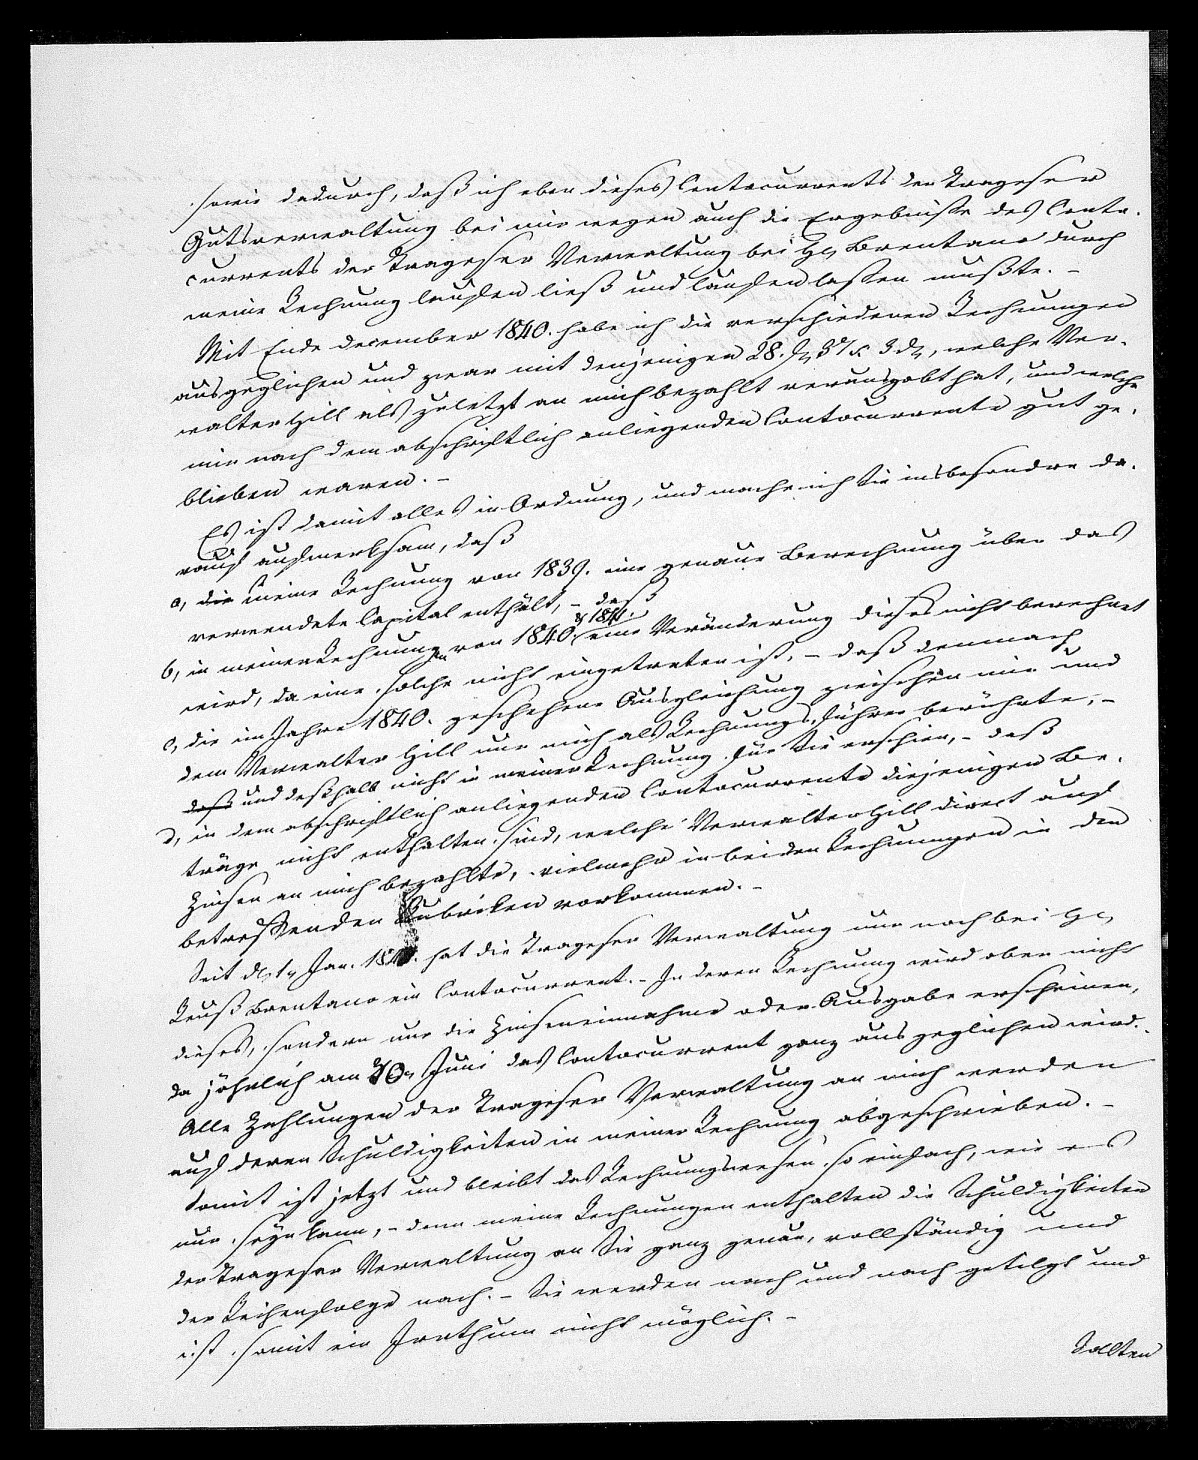 sowie dadurch, daß ich eben dieses Contocurrents der Trageser
Gutsverwaltung bei mir wegen auch die Ergebnisse des Conto-
currents der Trageser Verwaltung bei H. Brentano durch
meine Rechnung laufen ließ und laufen lassen mußte. –
Mit Ende december 1840. habe ich die verschiedenen Rechnungen
ausgeglichen und zwar mit denjenigen 28. f 37 x 3 d, welche Ver-
walter Hill als zuletzt an mich bezahlt verausgabt hat, und welche
mir nach dem abschriftlich anliegenden Contocurrente gut ge-
blieben waren. –
Es ist damit alles in Ordnung, und mache ich Sie insbesondre da-
rauf aufmerksam, daß
a, die meine Rechnung von 1839. eine genaue Berechnung über das
verwendete Capital enthält, – daß
b, in meinen Rechnungen von 1840. & 1841. eine Veränderung dieses nicht berechnet
wird, da eine solche nicht eingetreten ist, – daß demnach
c, die im Jahre 1840. geschehene Ausgleichung zwischen mir und
dem Verwalter Hill nur mich als Rechnungsführer berührte, –
daß und deßhalb nicht in meiner Rechnung für Sie erschien, – daß
d, in dem abschriftlich anliegenden Contocurrente diejenigen Be-
träge nicht enthalten sind, welche Verwalter Hill direct auf
Zinsen an mich bezahlte, vielmehr in beiden Rechnungen in den
betreffenden Rubriken vorkommen. –
Seit d. 1. Jan. 184 hat die Trageser Verwaltung nur noch bei H.
Reuß Brentano ein Contocurrent. – In deren Rechnung wird aber nicht
dieses, sondern nur die Zinseneinnahme oder Ausgabe erscheinen,
da jährlich am 30. Juni das Contocurrent ganz ausgeglichen wird. –
Alle Zahlungen der Trageser Verwaltung an mich werden
auf deren Schuldigkeiten in meiner Rechnung abgeschrieben. –
Somit ist jetzt und bleibt das Rechnungswesen so einfach, wie es
nur seyn kann, – denn meine Rechnungen enthalten die Schuldigkeiten
der Trageser Verwaltung an Sie ganz genau, vollständig und
der Reihenfolge nach. – Sie werden nach und nach getilgt und
ist somit ein Irrthum nicht möglich. –
Sollten